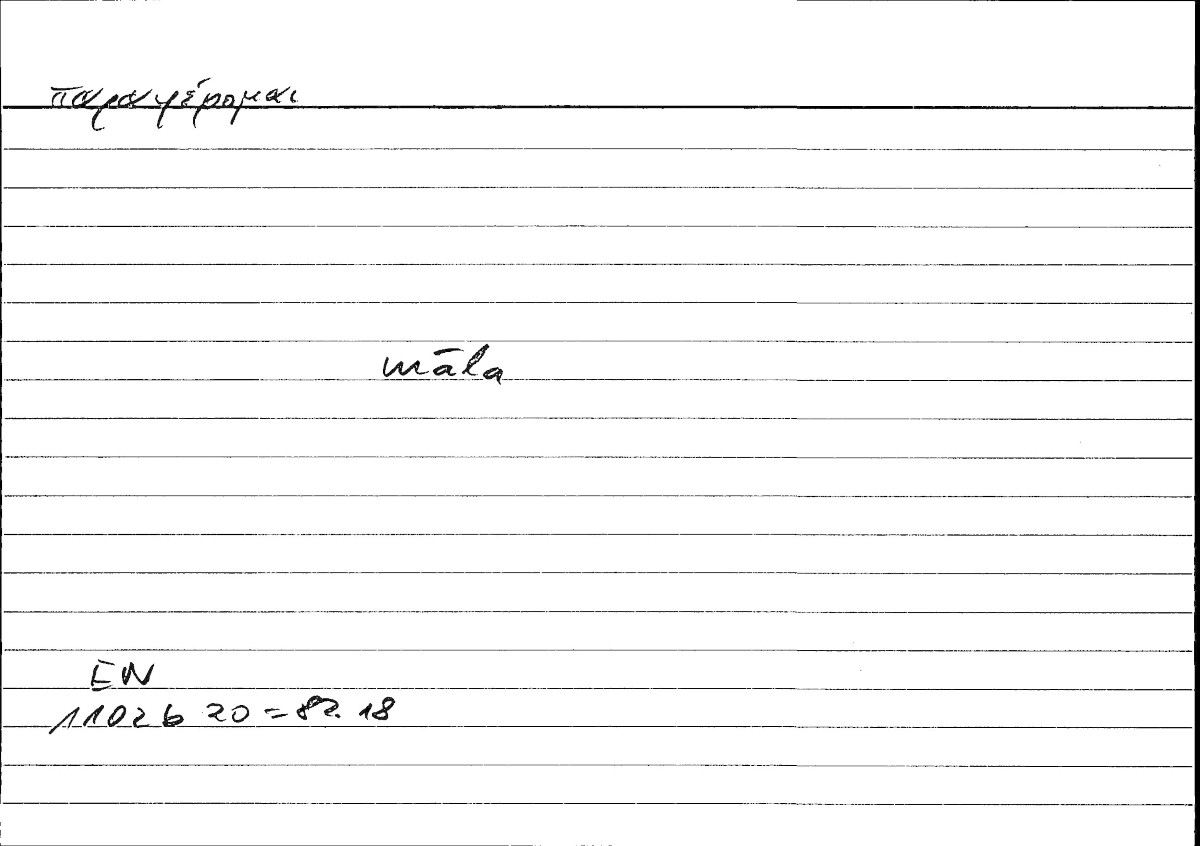 παραφέρομαι
māla
EN
1102b 20 = 82. 18